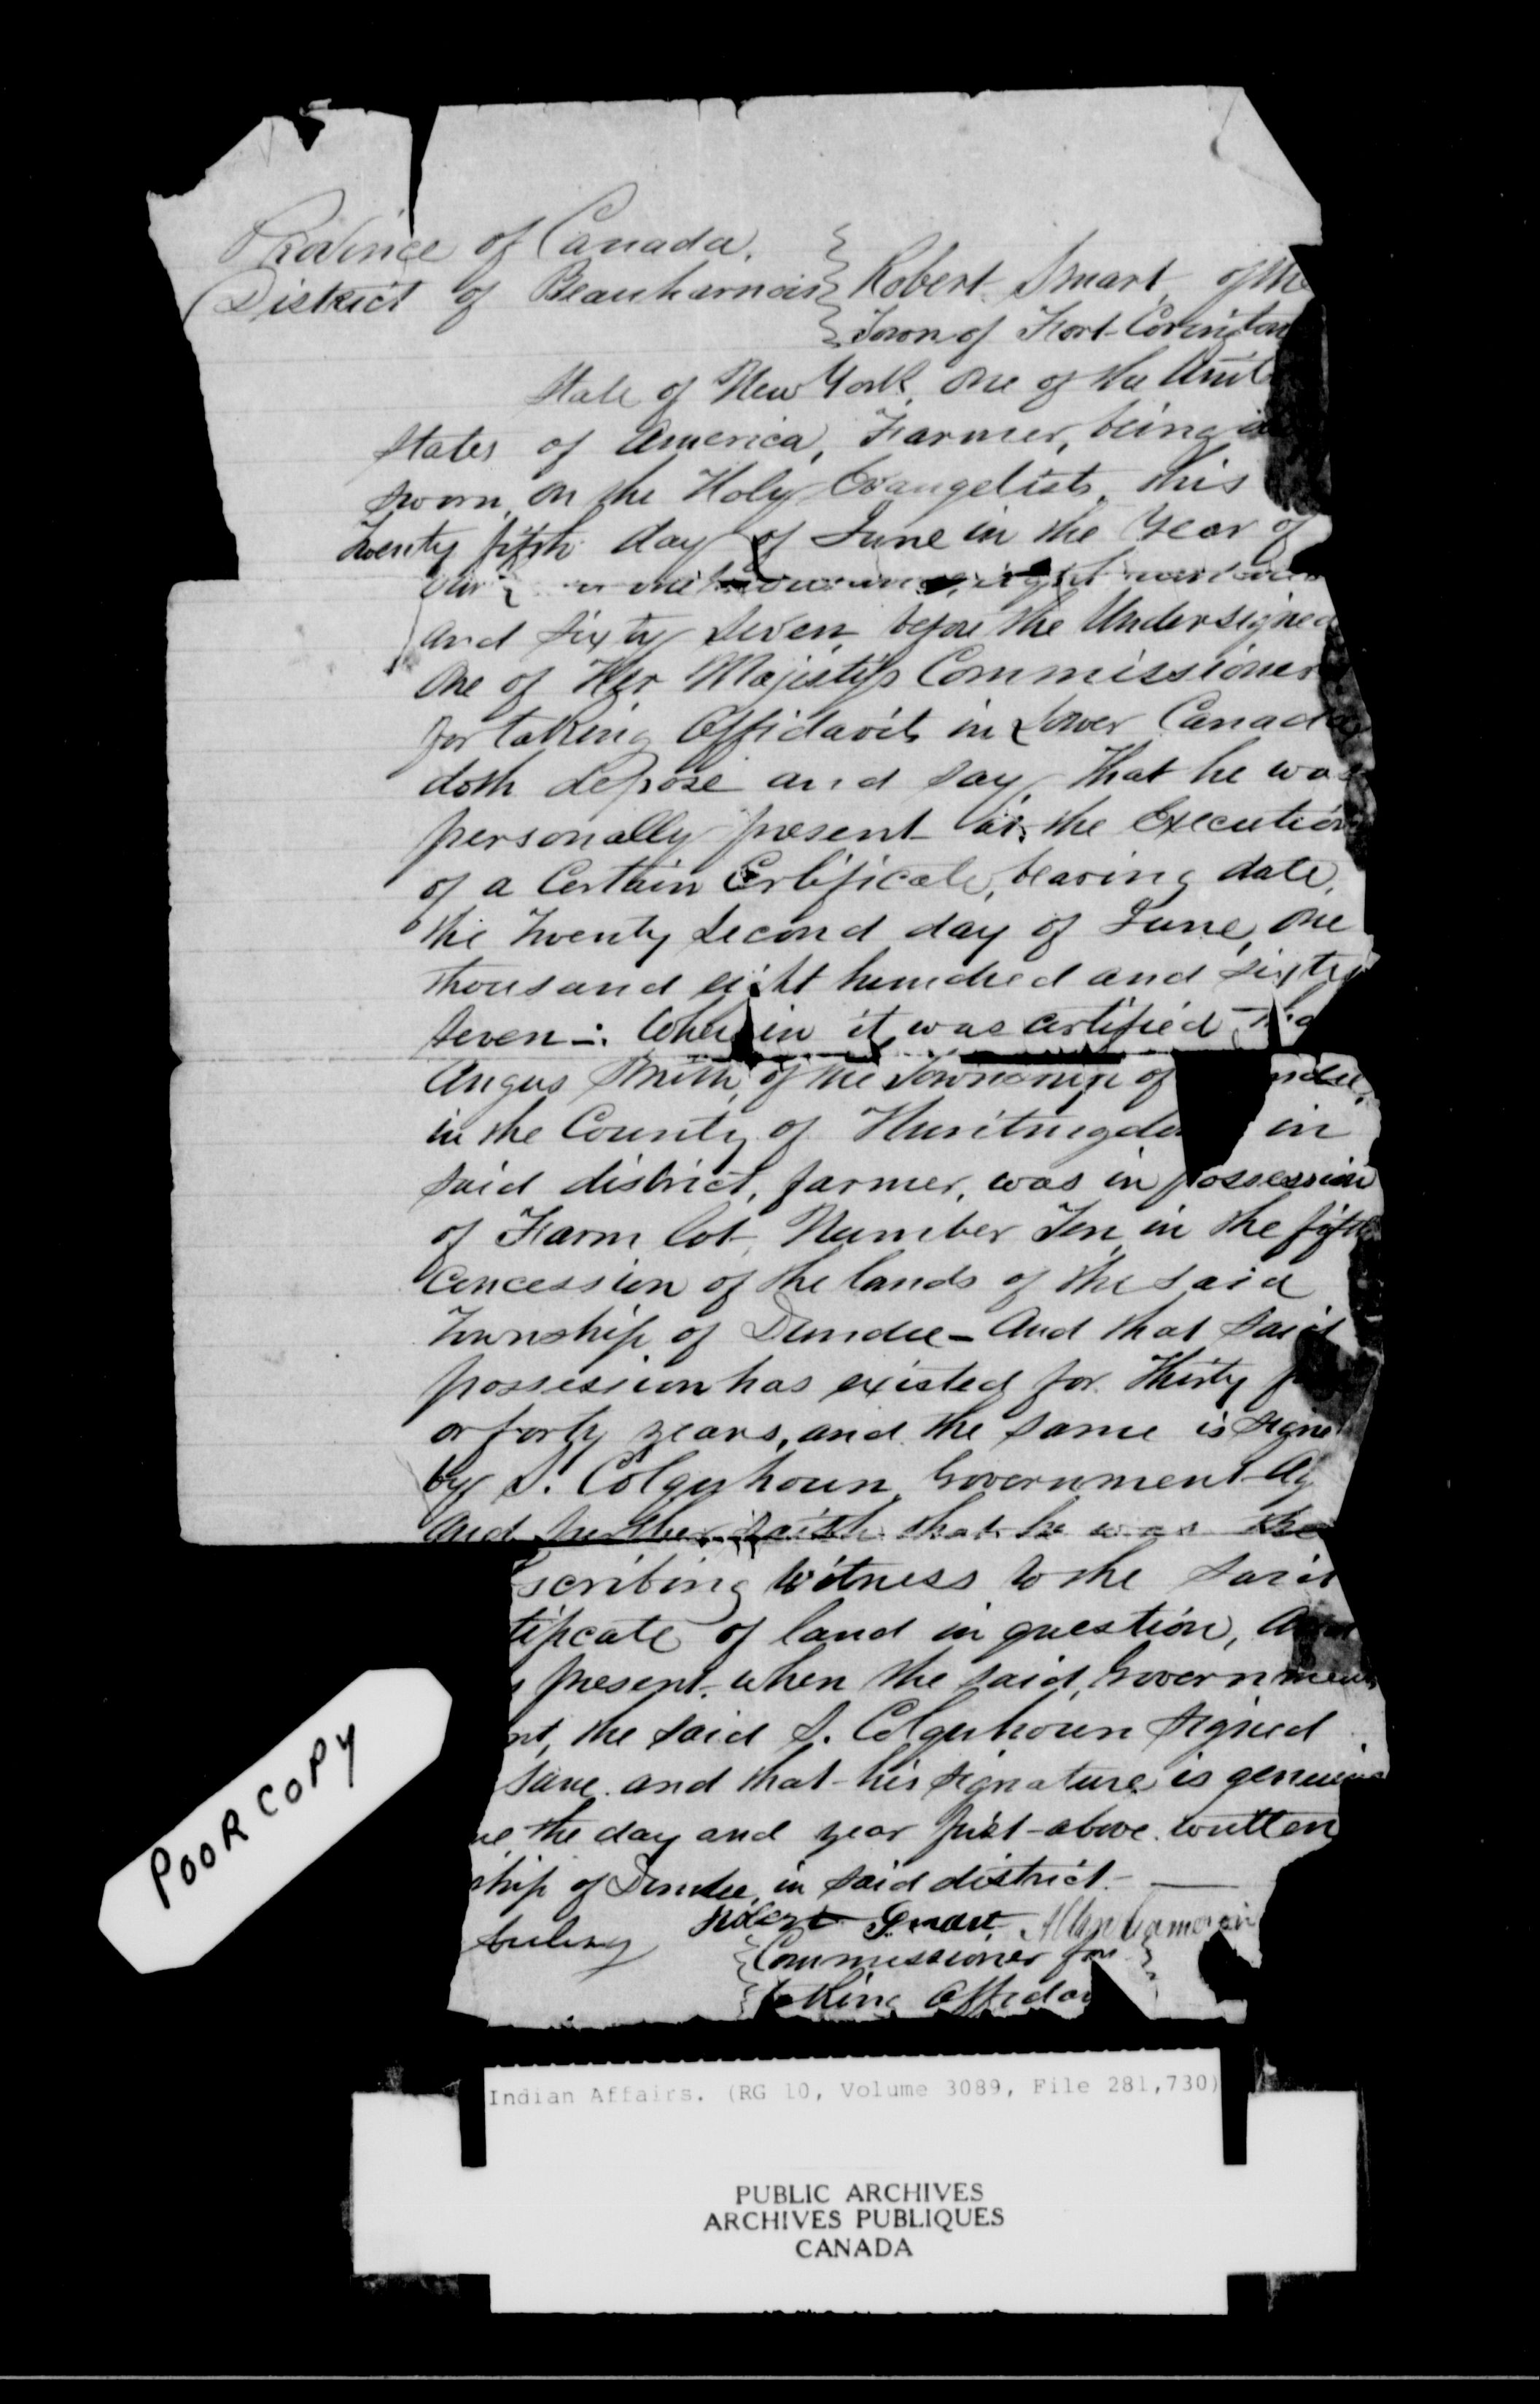 Province of Canada,
District of Beauharnois } Robert Smart, of the
Town of Fort Covington
State of New York, One of the Unit
States of America, Farmer, being
sworn, on the Holy Evangelists, this
Twenty fifth day of June in the Year of
our
and Sixty Seven, before the Undersigned
One of Her Majesty's Commissioner
for taking Affidavits in Lower Canada
doth depose and say, that he was
personally present at the Execution
of a Certain Certificate, bearing date,
the Twenty Second day of June, One
thousand eight hundred and Sixty
Seven -: Wherein it was certified tha
Angus Smith, of the Township of ndee,
in the County of Huntingdo in
said district, farmer, was in possession
of Farm lot, Number Ten, in the fifth
Concession of the lands of the said
Township of Dundee - And that said
possession has existed for Thirty
or forty years, and the same is signe
by S. Colquhoun, Government Ag
And further saith that he was the
scribing Witness to the said
tificate of land in question, And
present, when the said Government
nt, the said S. Colquhoun Signed
same and that his signature is genuine
me, the day and year first above written
ship of Dundee, in said district. —
Robert Smart,
Commissioner for
taking Affidav
POOR COPY
Indian Affairs. (RG 10, Volume 3089, File 281,730)
PUBLIC ARCHIVES
ARCHIVES PUBLIQUES
CANADA